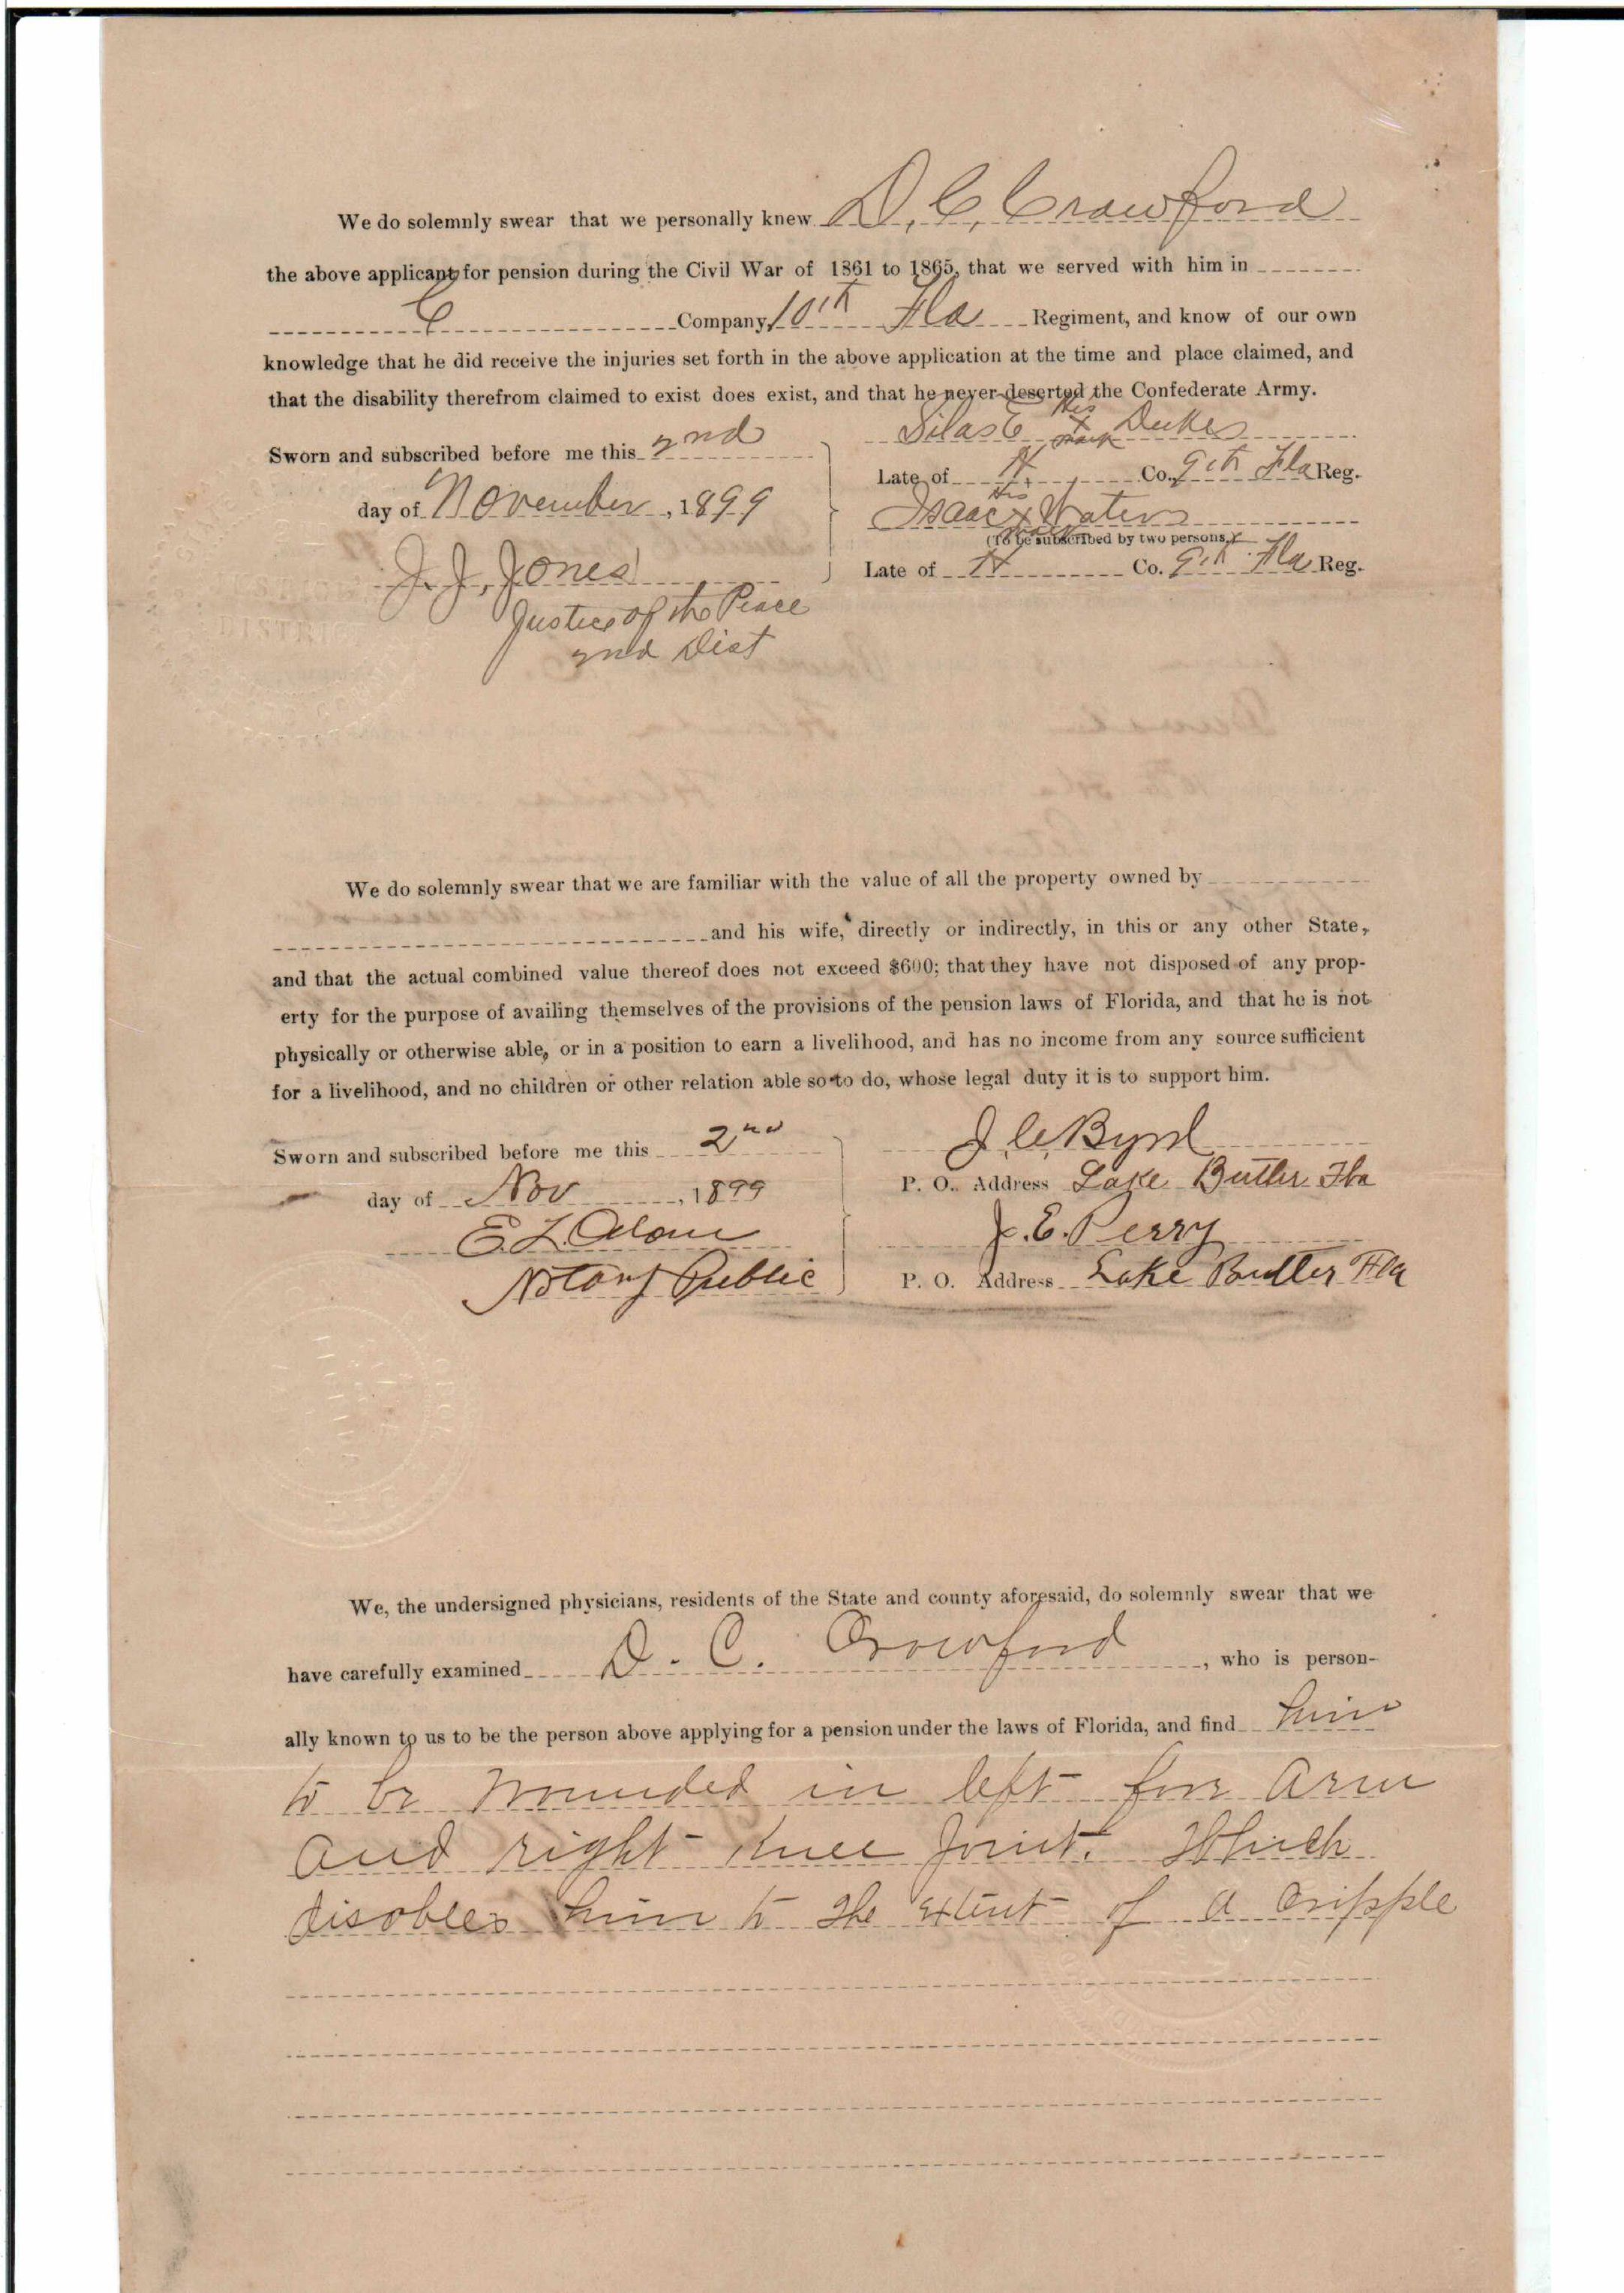 We do solemnly swear that we personally knew D. C. Crawford
the above applicant for pension during the Civil War of 1861 to 1865, that we served with him in
C Company, 10th Fla Regiment, and know of our own
knowledge that he did receive the injuries set forth in the above application at the time and place claimed, and
that the disability therefrom claimed to exist does exist, and that he never deserted the Confederate Army.
his
Silas E x Dukes
mark
Sworn and subscribed before me this 2nd
Late of H. Co. 9th Fla Reg.
day of November, 1899
his
Isaac x Waters
mark
(To be subscribed by two persons.)
J. J. Jones
Late of H Co. 9th Fla Reg.
Justice of the Peace
2nd Dist
We do solemnly swear that we are familiar with the value of all the property owned by
and his wife, directly or indirectly, in this or any other State,
and that the actual combined value thereof does not exceed $600; that they have not disposed of any prop-
erty for the purpose of availing themselves of the provisions of the pension laws of Florida, and that he is not
physically or otherwise able, or in a position to earn a livelihood, and has no income from any source sufficient
for a livelihood, and no children or other relation able so to do, whose legal duty it is to support him.
Sworn and subscribed before me this 2nd
J. C. Byrd
day of Nov, 1899
P. O. Address Lake Butler Fla
E. L.
J. E. Perry
Notary Public
P. O. Address Lake Butler Fla
We, the undersigned physicians, residents of the State and county aforesaid, do solemnly swear that we
have carefully examined D. C. Crowford, who is person-
ally known to us to be the person above applying for a pension under the laws of Florida, and find him
to be wounded in left for arm
and right knee joint. Which
disobles him to the extent of a cripple